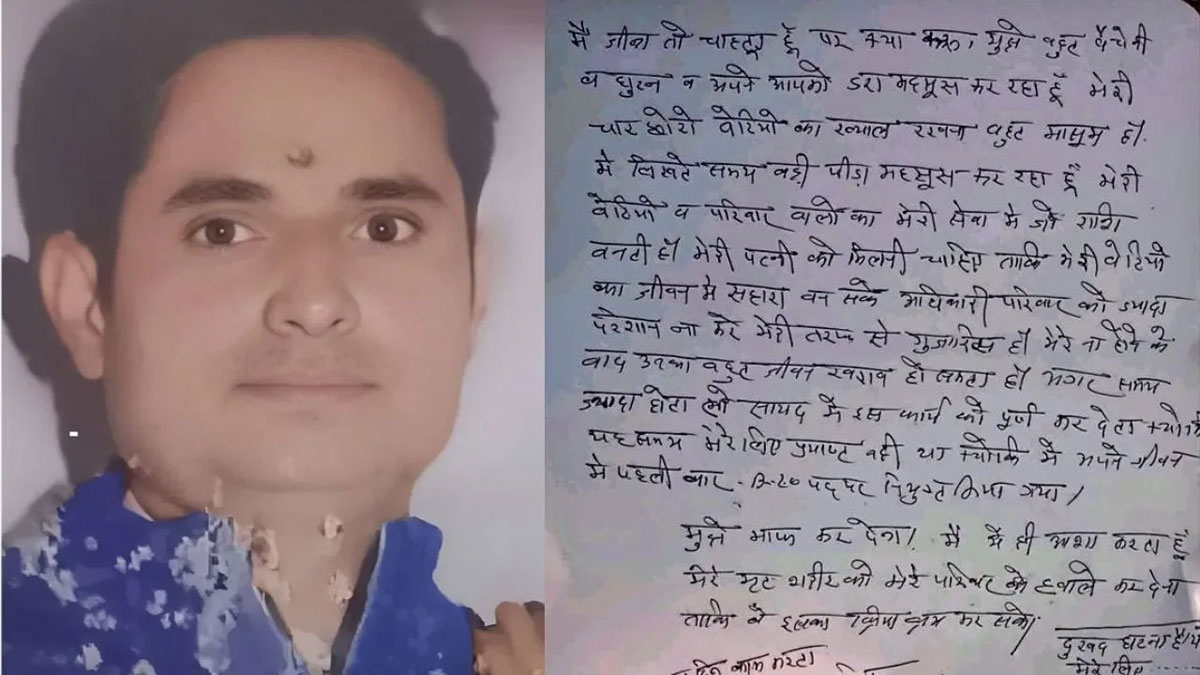 मै जीना तो चाहता हूँ पर क्या करू, मुझे बहुत बैचेनी
व घुटन व अपने आपको डरा महसूस कर रहा हूँ मेरी
चार छोटी बेटियो का ख्याल रखना बहुत मासूम हौ.
मै लिखते समय बड़ी पीड़ा महसूस कर रहा हूँ मेरी
बेटियो व परिवार वालो का मेरी सेवा मे जो राशि
बनती हौ मेरी पत्नी को मिलनी चाहिए ताकि मेरी बेटियो
का जीवन मे सहारा बन सके अधिकारी परिवार को ज्यादा
परेशान ना करे मेरी तरफ से गुजारिस हौ मेरे ना होने के
बाद उनका बहुत जीवन खराब हो सकता हौ अगर समय
ज्यादा होता तो सायद मै इस कार्य को पूर्ण कर देता
यह समय मेरे लिए नही था क्योकि मै अपने जीवन
मे पहली बार पद पर नियुक्त किया गया।
मुझे माफ कर देना। मै ये ही आशा करता हूँ
मेरे मृत शरीर को मेरे परिवार के हवाले कर देना
ताकि वे इसका क्रिया क्रम कर सके।
दुखद घटना है
मेरे लिए ....
काम करता